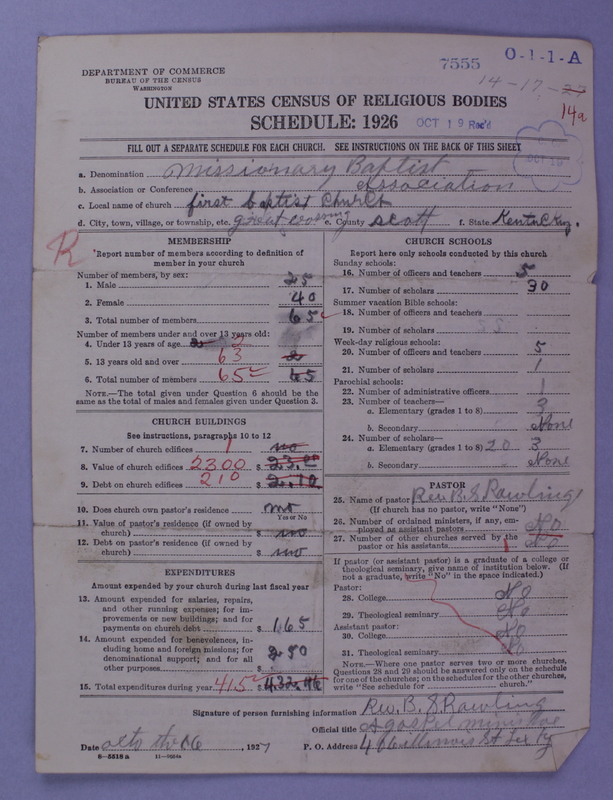 7555 O-1-1-A
DEPARTMENT OF COMMERCE
BUREAU OF THE CENSUS
WASHINGTON
14-17-
14a
UNITED STATES CENSUS OF RELIGIOUS BODIES
SCHEDULE: 1926
OCT 19 Rec'd
OCT 19
FILL OUT A SEPARATE SCHEDULE FOR EACH CHURCH. SEE INSTRUCTIONS ON THE BACK OF THIS SHEET
a. Denomination Missionary Baptist
b. Association or Conference Association
c. Local name of church first baptist Church
d. City, town, village, or township, etc. great crossing e. County scott f. State Kentucky.
R
MEMBERSHIP
Report number of members according to definition of member in your church
Number of members, by sex:
1. Male 25
2. Female 40
3. Total number of members 65
Number of members under and over 13 years old:
4. Under 13 years of age 2
5. 13 years old and over 63 2
6. Total number of members 65 65
NOTE.—The total given under Question 6 should be the
same as the total of males and females given under Question 3.
CHURCH BUILDINGS
See instructions, paragraphs 10 to 12
7. Number of church edifices 1 no
8. Value of church edifices 2300 $
9. Debt on church edifices 210 $ 2.10
10. Does church own pastor's residence? no
Yes or No
11. Value of pastor's residence (if owned by
church) $ no
12. Debt on pastor's residence (if owned by
church) $ no
EXPENDITURES
Amount expended by your church during last fiscal year
13. Amount expended for salaries, repairs,
and other running expenses; for im-
provements or new buildings; and for
payments on church debt $ 165
14. Amount expended for benevolences, in-
cluding home and foreign missions; for
denominational support; and for all
other purposes $ 250
15. Total expenditures during year 415 $
CHURCH SCHOOLS
Report here only schools conducted by this church
Sunday schools:
16. Number of officers and teachers 5
17. Number of scholars 30
Summer vacation Bible schools:
18. Number of officers and teachers
19. Number of scholars
Week-day religious schools:
20. Number of officers and teachers 5
21. Number of scholars 1
Parochial schools:
22. Number of administrative officers 1
23. Number of teachers—
a. Elementary (grades 1 to 8) 3
b. Secondary None
24. Number of scholars—
a. Elementary (grades 1 to 8) 20 3
b. Secondary None
PASTOR
25. Name of pastor Rev. B. S. Rawlings
(If church has no pastor, write "None")
26. Number of ordained ministers, if any, em-
ployed as assistant pastors No
27. Number of other churches served by the
pastor or his assistants 1 No
If pastor (or assistant pastor) is a graduate of a college or
theological seminary, give name of institution below. (If
not a graduate, write "No" in the space indicated.)
Pastor:
28. College No
29. Theological seminary No
Assistant pastor:
30. College No
31. Theological seminary No
NOTE.—Where one pastor serves two or more churches,
Questions 28 and 29 should be answered only on the schedule
for one of the churches; on the schedules for the other churches,
write "See schedule for church."
Signature of person furnishing information Rev. B. S. Rawling
Official title A gospel minister
Date octo the 16, 1927 P. O. Address Illinois St Lex Ky
8-5518a 11-9084a